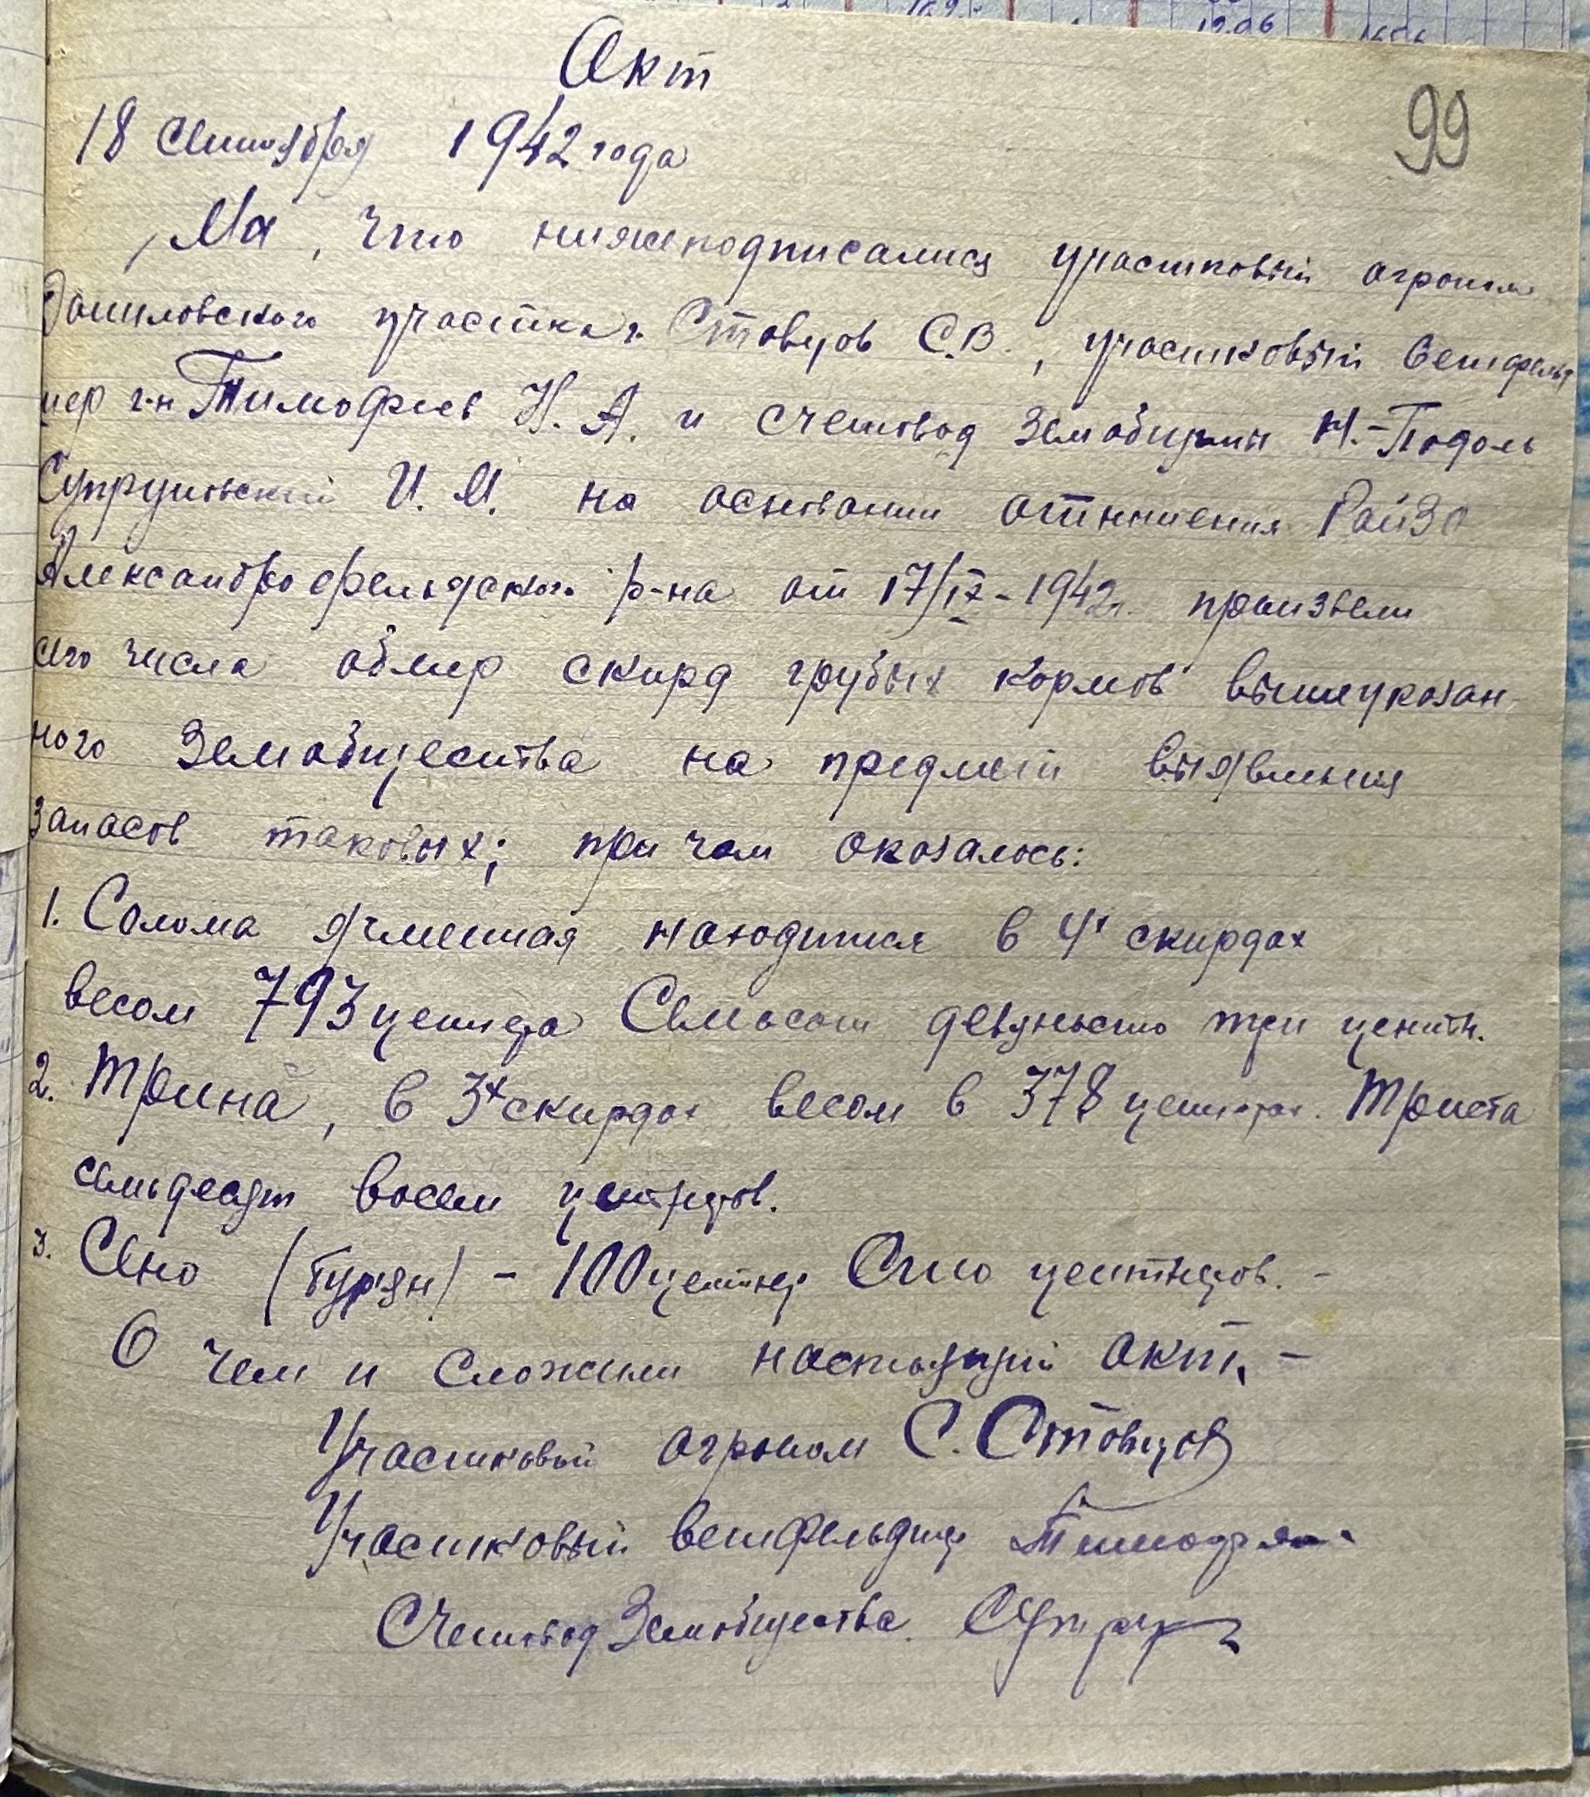 99
Акт
18 сентября 1942 года
Мы, что нижеподписались участковый агроном
Даниловского участка г. Стовцов С.В., участковый ветфельд
шер г-н Тимофеев Н. А. и счетовод Земобщины Н.-Подоль
Супруновский И. М. на основании отношения РайЗО
Александрофельдского р-на от 17/IX-1942г. произвели
сего числа обмер скирд грубых кормов вышеуказан
ного Земобщества на предмет выявления
запасов таковых; при чом оказалось:
1. Солома ячменная находится в 4х скирдах
весом 793 центнера Семьсот девяносто три центн.
2. Трина, в 3х скирдах весом в 378 центнер. Триста
семьдесят восем центнеров.
3. Сено (бурян) - 100 центнер Сто центнеров. -
О чем и сложили настоящий акт. -
Участковый агроном С. Стовцов
Участковый ветфельдшер Тимофеев
Счетовод Земобщества Супрун